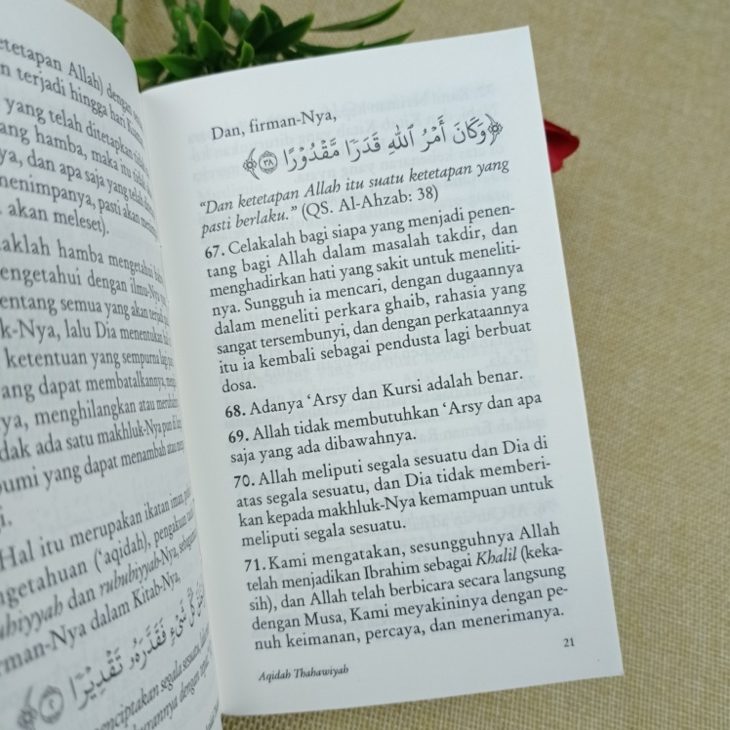 ketetapan Allah) dengan
terjadi hingga hari
yang telah ditetapkan
hamba, maka itu
dan apa saja yang telah
menimpanya, pasti akan
akan meleset).
hamba mengetahui
dengan ilmu-Nya
tentang semua yang akan terjadi
lalu Dia menentukan
ketentuan yang sempurna lagi
yang dapat membatalkannya,
menghilangkan atau
ada satu makhluk-Nya pun di
bumi yang dapat menambah atau
Hal itu merupakan ikatan iman,
('aqidah), pengakuan
dan rububiyyah-Nya,
dalam Kitab-Nya,
شَىْءٍ فَقَدَّرَهُۥ تَقْدِيرًا ٢
segala sesuatu,
dengan
Dan, firman-Nya,
﴿وَكَانَ أَمْرُ ٱللَّهِ قَدَرًا مَّقْدُورًا ٣٨﴾
"Dan ketetapan Allah itu suatu ketetapan yang
pasti berlaku." (QS. Al-Ahzab: 38)
67. Celakalah bagi siapa yang menjadi penen-
tang bagi Allah dalam masalah takdir, dan
menghadirkan hati yang sakit untuk meneliti-
nya. Sungguh ia mencari, dengan dugaannya
dalam meneliti perkara ghaib, rahasia yang
sangat tersembunyi, dan dengan perkataannya
itu ia kembali sebagai pendusta lagi berbuat
dosa.
68. Adanya 'Arsy dan Kursi adalah benar.
69. Allah tidak membutuhkan 'Arsy dan apa
saja yang ada dibawahnya.
70. Allah meliputi segala sesuatu dan Dia di
atas segala sesuatu, dan Dia tidak memberi-
kan kepada makhluk-Nya kemampuan untuk
meliputi segala sesuatu.
71. Kami mengatakan, sesungguhnya Allah
telah menjadikan Ibrahim sebagai Khalil (keka-
sih), dan Allah telah berbicara secara langsung
dengan Musa, Kami meyakininya dengan pe-
nuh keimanan, percaya, dan menerimanya.
Aqidah Thahawiyah
21